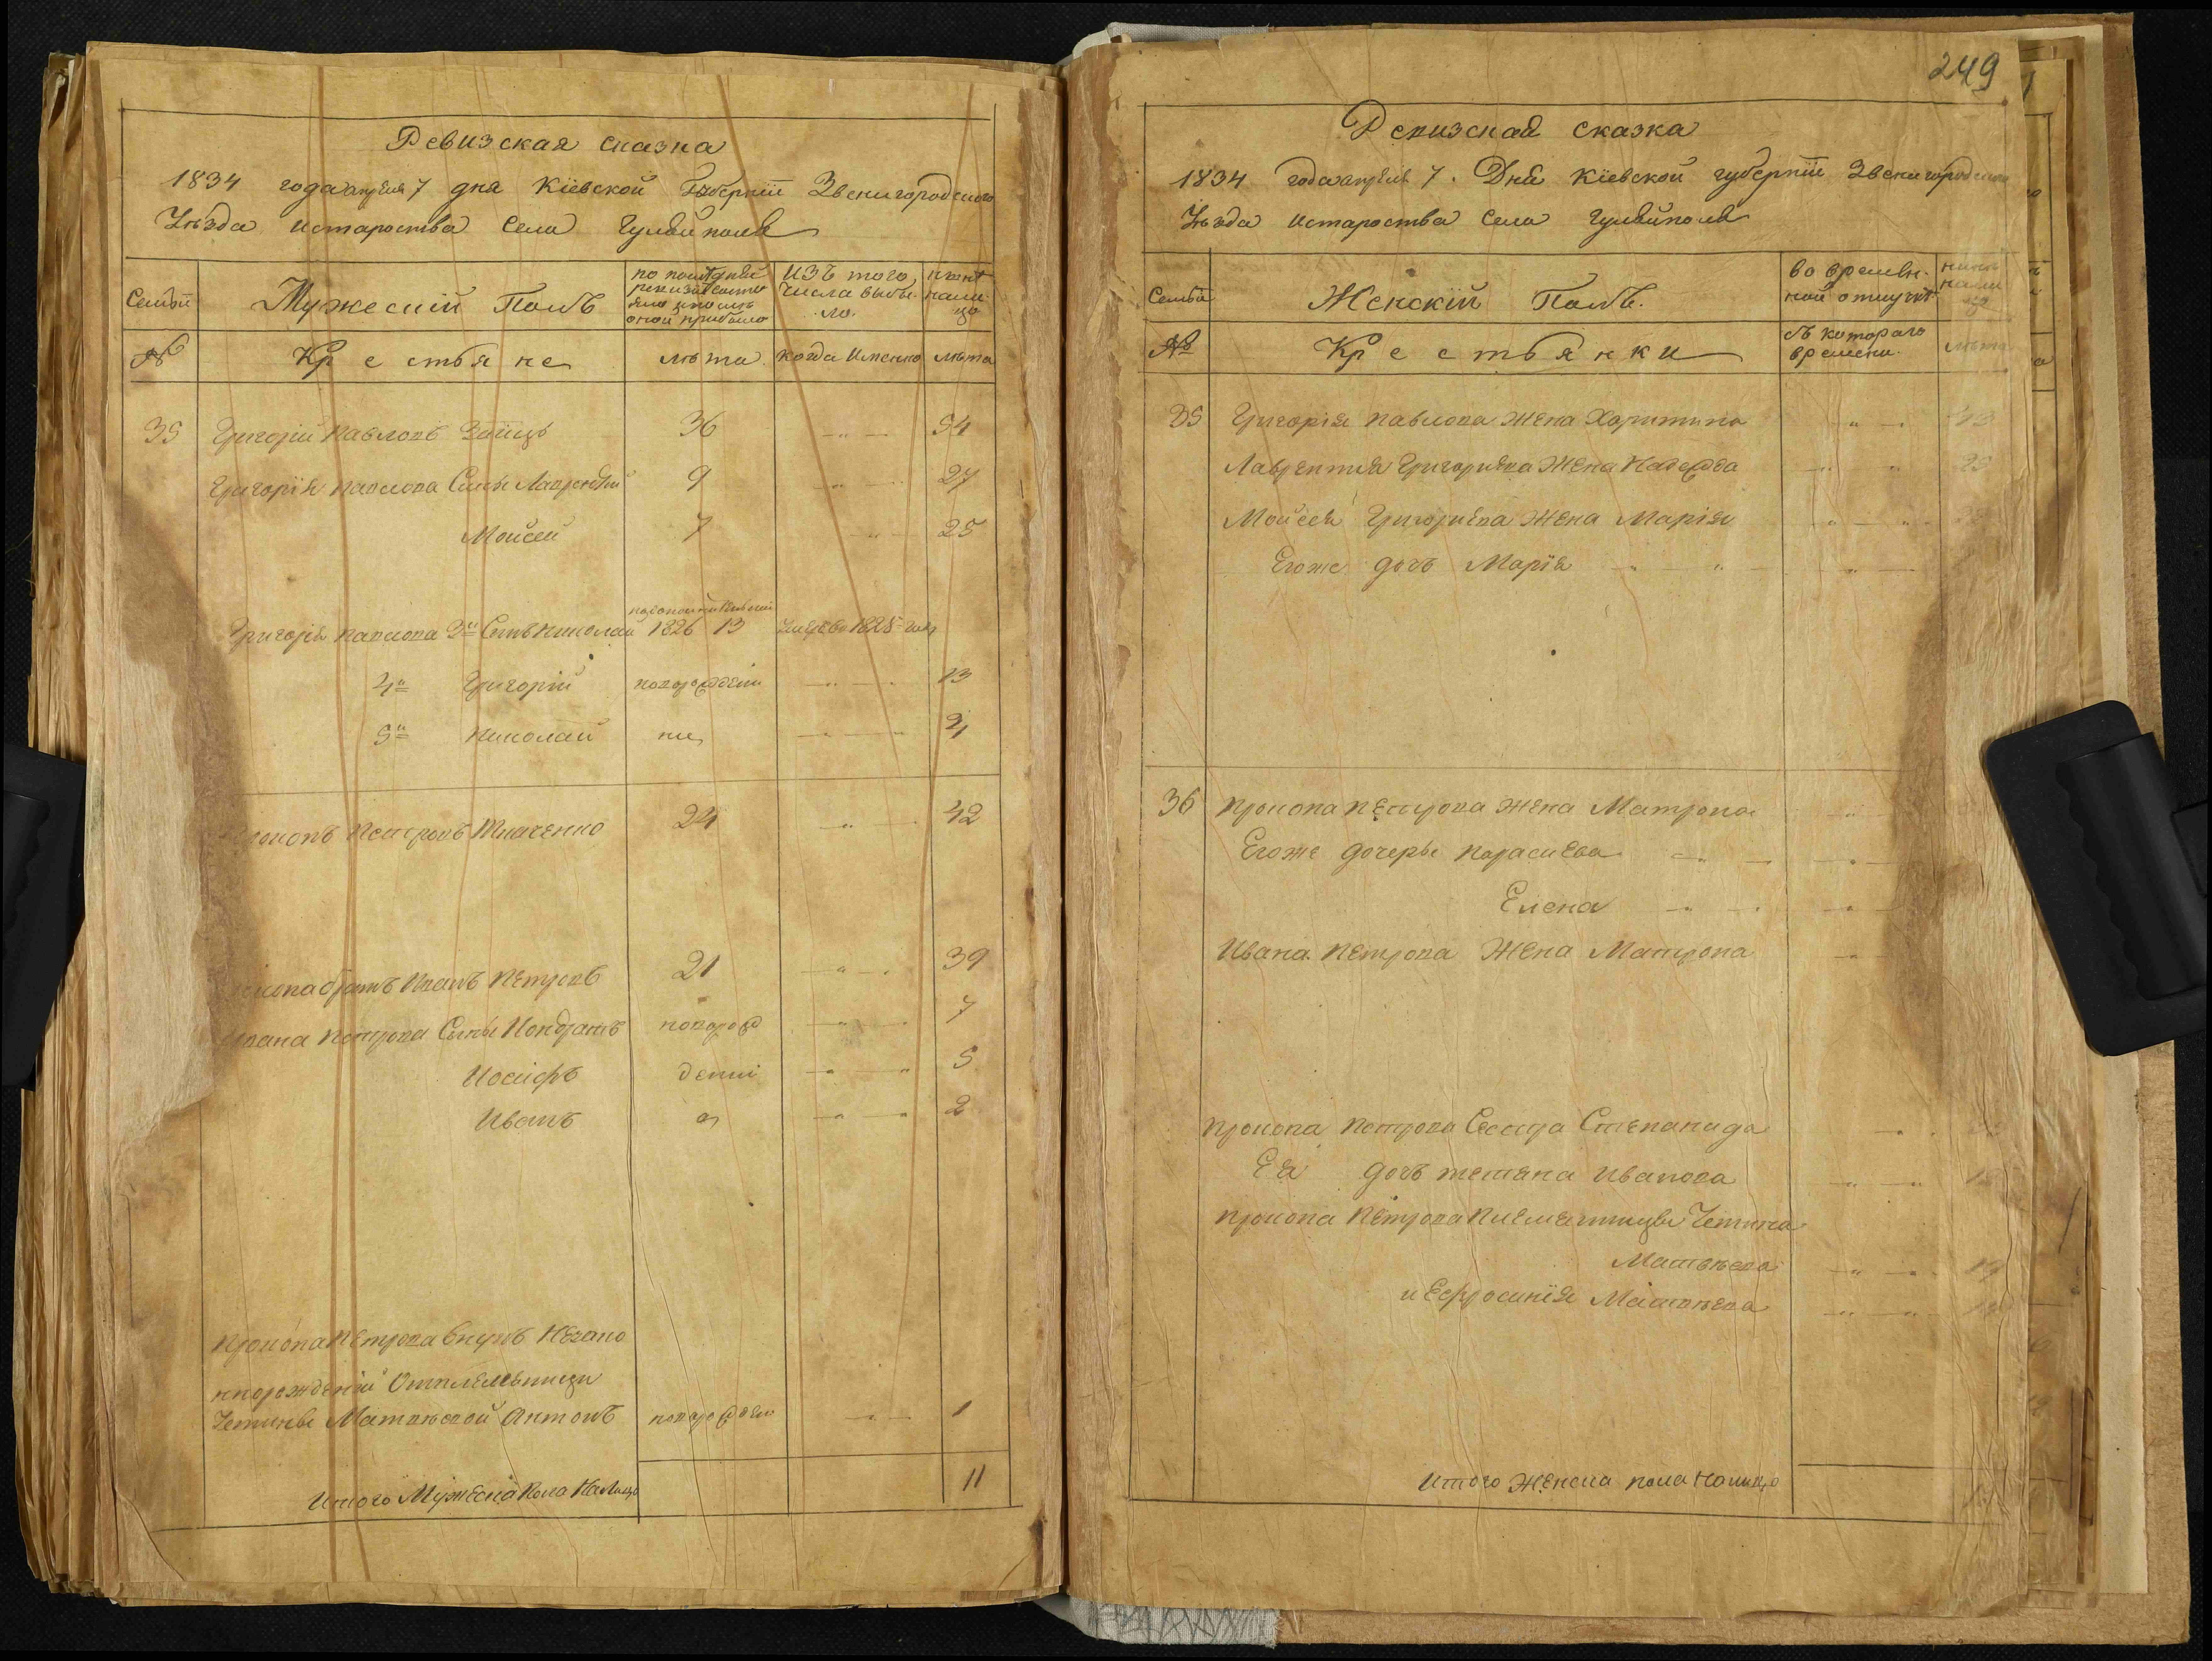 Ревизская сказка
1834 года апреля 7 дня Кіевской Губерніи Звенигородского
Уѣзда Истароства Села Гуляйполя
Семьи
Мужескій Полъ
по последней ревизіи состо яло и после оной прибыло
Изъ того числа выбы- ло.
ныне налицо
№
Крестьяне
лѣта
когда Именно
лѣта
35 Григорій Павловъ Заïицъ 36 54
Григорія Павлова Сыны Лаврентій 9 27
Мойсей 7 25
Григорія Павлова 3й Сынъ Николай 1826 13 Умре въ 1828 году
4й Григорій новорожденіи 13
5й Николай ние 4
Петровъ Ткаченко 24 42
братъ Иванъ Петровъ 21 39
Ивана Петрова Сыны Кондратъ новорож 7
Иосифъ дении 5
Иванъ 2
Прокопа Петрова Внукъ Незано
нпорожденій Отплемѣнницы
Устиньи Матвѣевой Антонъ новорожден 1
Итого Мужеска Пола На Лицо 11
249
Ревизская сказка
1834 года апреля 7. Дня Кіевской губерніи Звенигородского
Уѣзда Истароства Села Гуляйполя
Семьи
Женскій Полъ.
во времен- ной отлучке
ныне нали цо
№
Крестьянки
съ котораго времени.
лѣта
35 Григорія Павлова Жена Харитина
Лаврентия Григориева Жена Надежда
Мойсея Григориева Жена Марія
Егоже дочь Марія
36 Прокопа Петрова жена Матрона
Егоже дочеры Параскева
Елена
Ивана Петрова Жена Матрона
Прокопа Петрова Сестра Степанида
Ея дочь тетяна Иванова
Прокопа Петрова Племянницы Устина
Матвѣева
и Ефросинія Матвѣева
Итого Женска пола Налицо